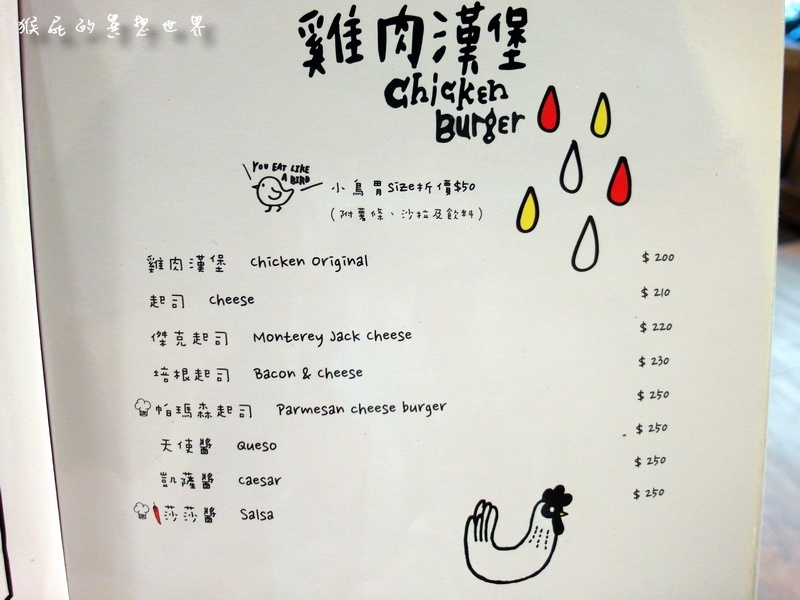 猴屁的異想世界
雞肉漢堡
Chicken
Burger
YOU EAT LIKE
A BIRD
小鳥胃size折價$50
(附薯條、沙拉及飲料)
雞肉漢堡 Chicken Original $200
起司 Cheese $210
傑克起司 Monterey Jack Cheese $220
培根起司 Bacon & Cheese $230
帕瑪森起司 Parmesan cheese burger $250
天使醬 Queso $250
凱薩醬 Caesar $250
莎莎醬 Salsa $250